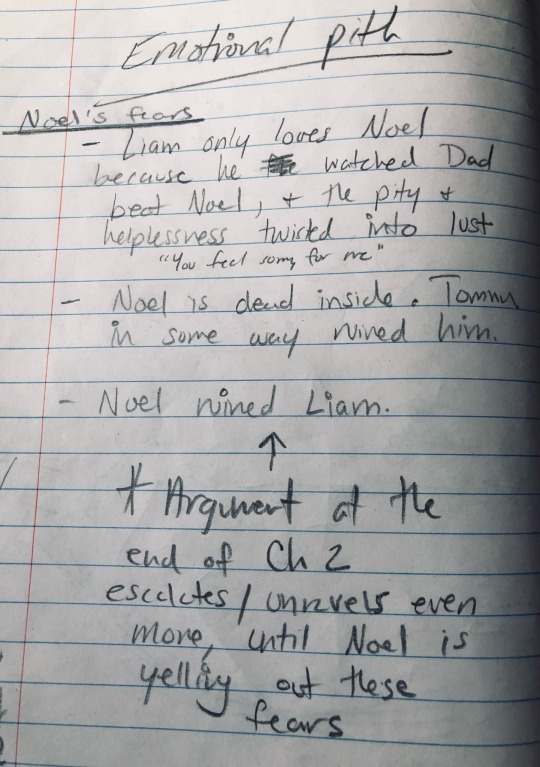 Emotional pith
Noel's fears
- Liam only loves Noel
because he watched Dad
beat Noel, + the pity +
helplessness twisted into lust
"You feel sorry for me"
- Noel is dead inside. Tommy
in some way ruined him.
- Noel ruined Liam.
↑
* Argument at the
end of Ch 2
escalates/unravels even
more, until Noel is
yelling out these
fears